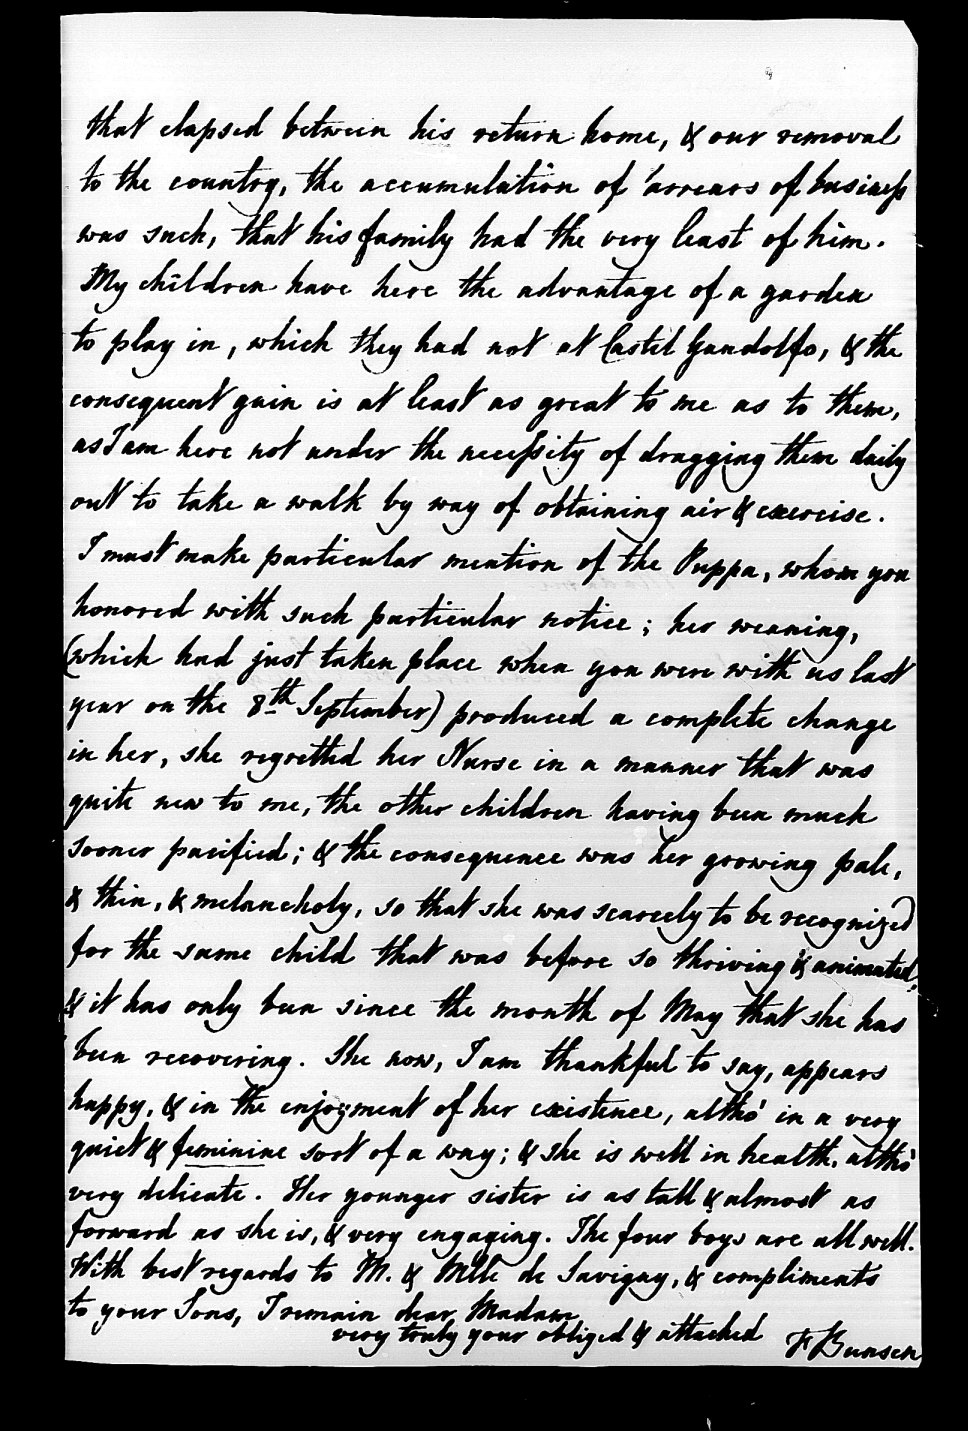 that elapsed between his return home, & our removal
to the country, the accumulation of arrears of business
was such, that his family had the very least of him.
My children have here the advantage of a garden
to play in, which they had not at Castel Gandolfo, & the
consequent gain is at least as great to me as to them,
as I am here not under the necessity of dragging them daily
out to take a walk by way of obtaining air & exercise.
I must make particular mention of the Puppa, whom you
honored with such particular notice; her weaning,
(which had just taken place when you were with us last
year on the 8th September) produced a complete change
in her, she regretted her Nurse in a manner that was
quite new to me, the other children having been much
sooner pacified; & the consequence was her growing pale,
& thin, & melancholy, so that she was scarcely to be recognized
for the same child that was before so thriving & animated,
& it has only been since the month of May that she has
been recovering. She now, I am thankful to say, appears
happy, & in the enjoyment of her existence, altho' in a very
quiet & feminine sort of a way; & she is well in health, altho'
very delicate. Her younger sister is as tall & almost as
forward as she is, & very engaging. The four boys are all well.
With best regards to M. & Mlle de Savigny, & compliments
to your Sons, I remain dear Madam
very truly your obliged & attached
F Bunsen